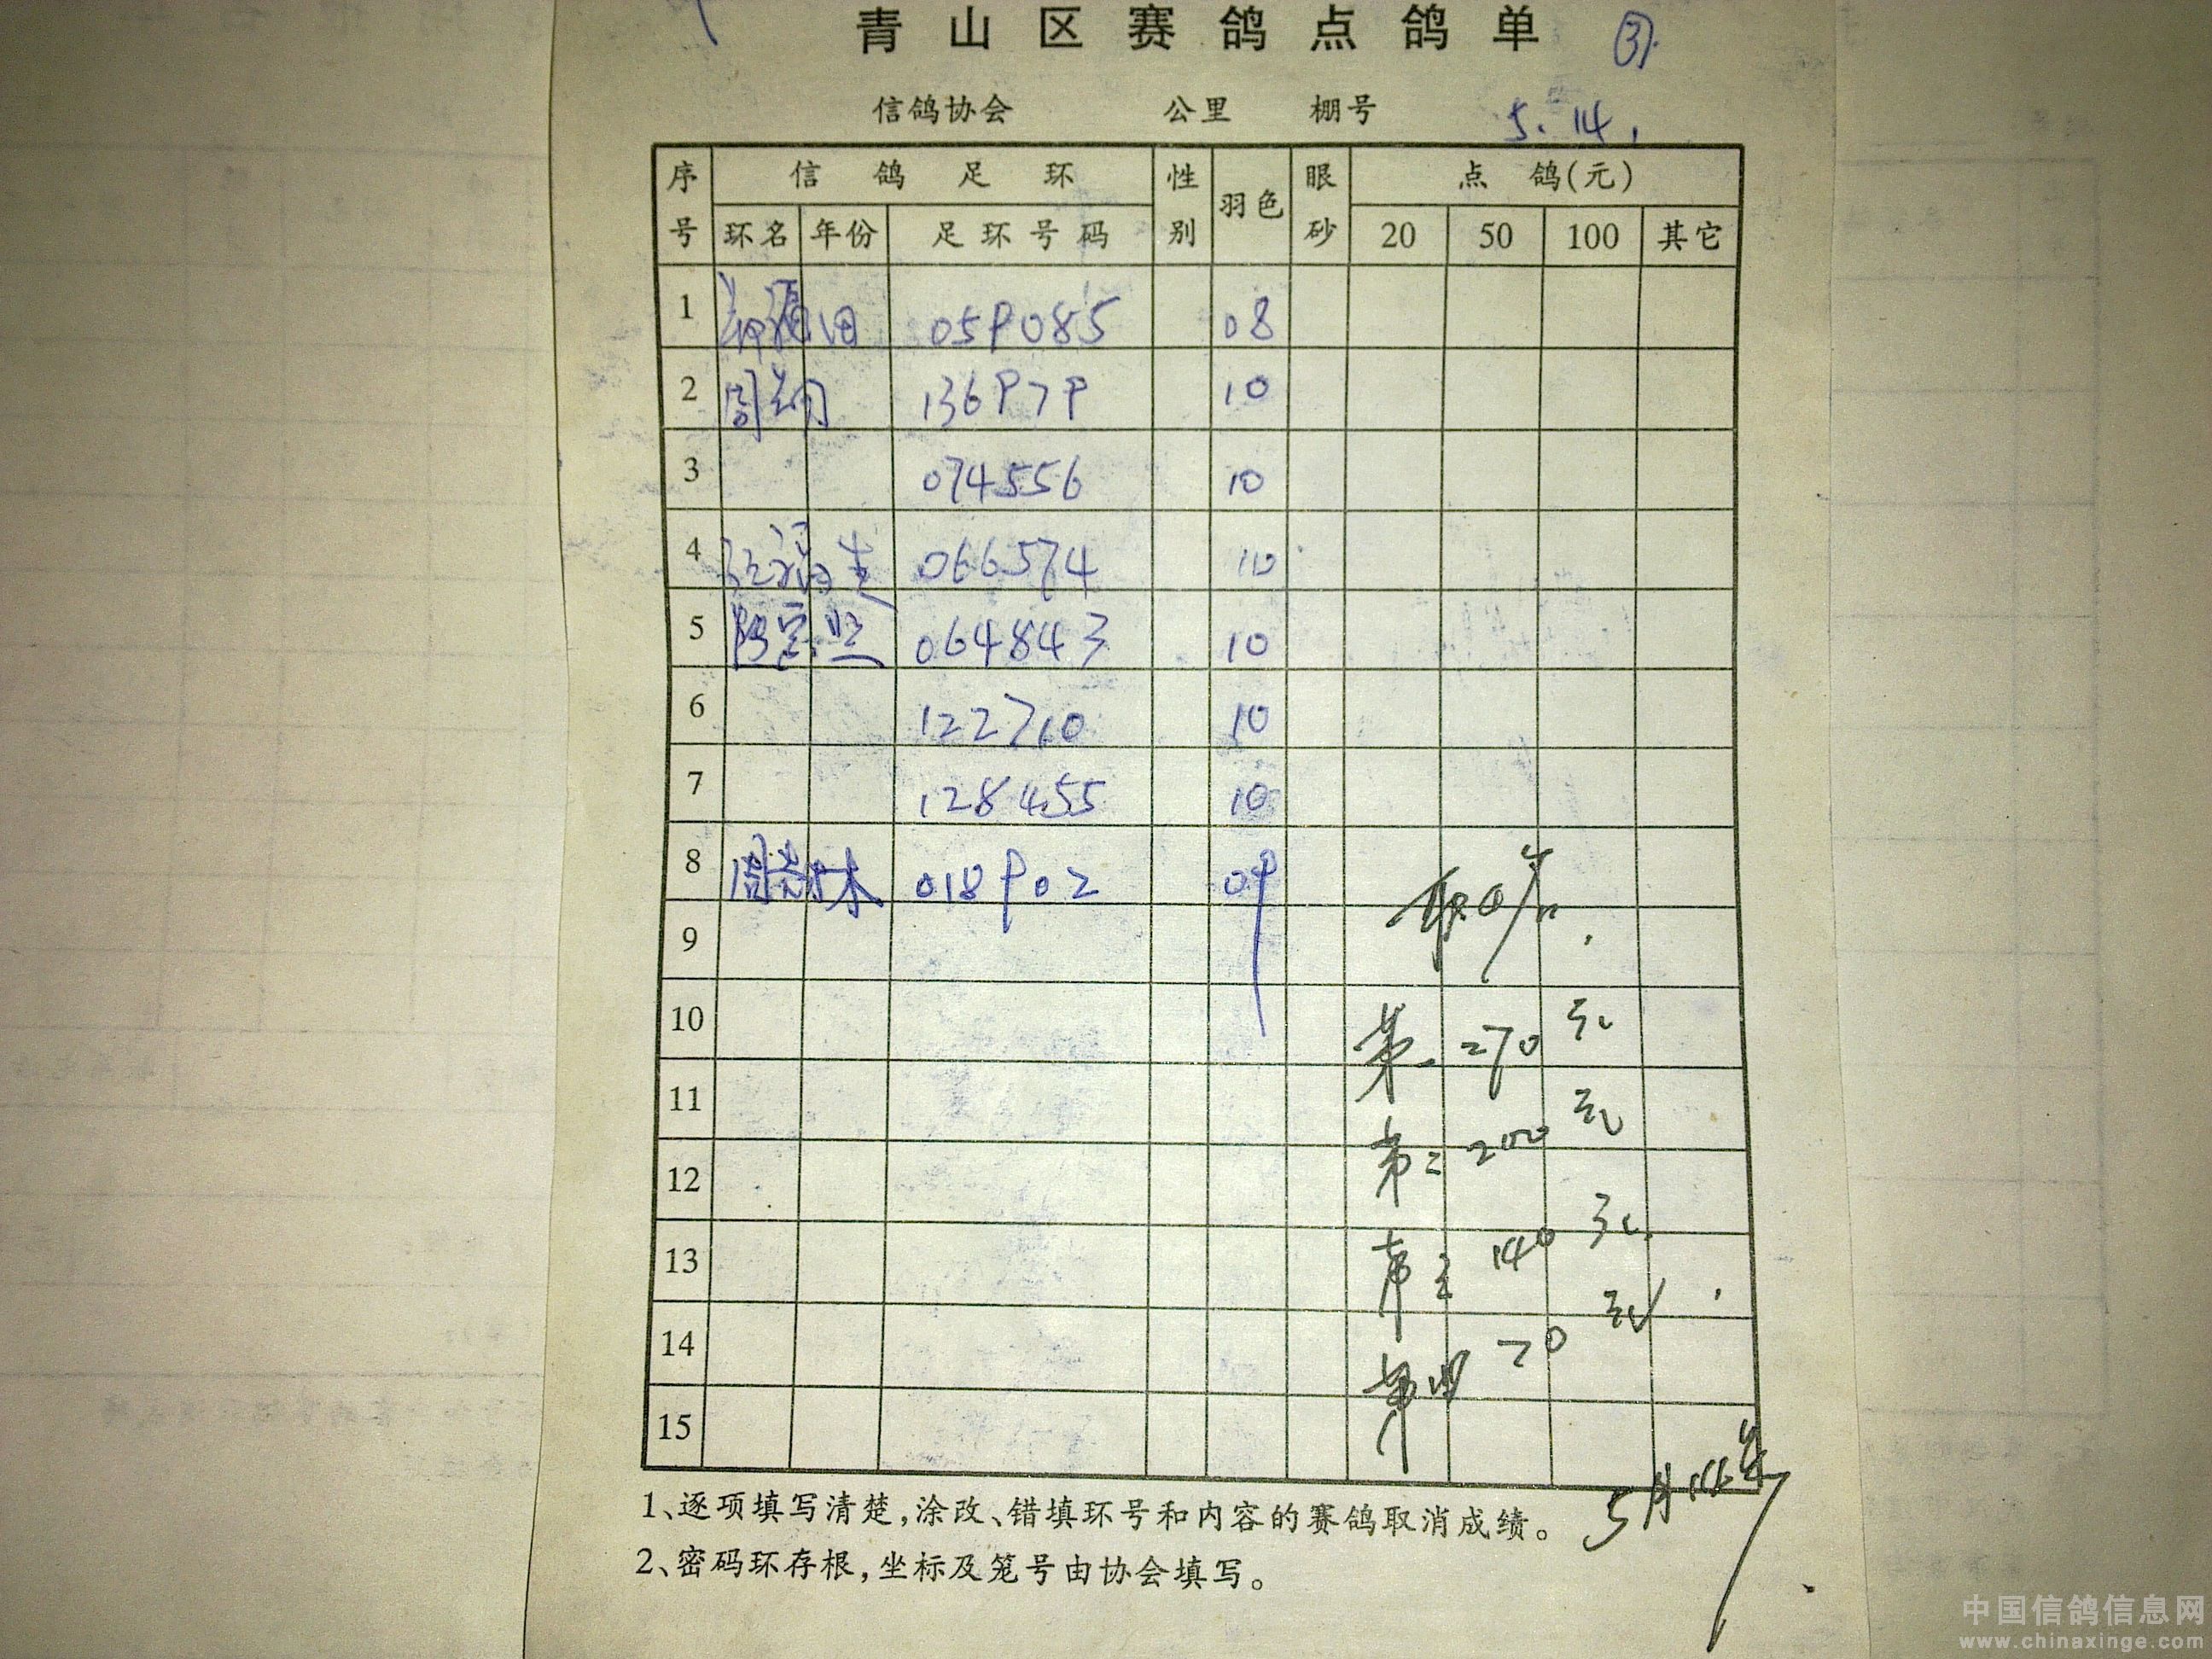 青山区赛鸽点鸽单 ③
信鸽协会 公里 棚号 5.14.
序号 信鸽足环 性别 羽色 眼砂 点鸽(元)
环名 年份 足环号码 20 50 100 其它
1 059085 08
2 周翔 136979 10
3 074556 10
4 066574 10
5 064843 10
6 122710 10
7 128455 10
8 018902 09
9
10 第一 270元
11
12 第二 200元
13 第三 140元
14 第四 70元
15
5月14号
1、逐项填写清楚,涂改、错填环号和内容的赛鸽取消成绩。
2、密码环存根,坐标及笼号由协会填写。
中国信鸽信息网
www.chinaxinge.com